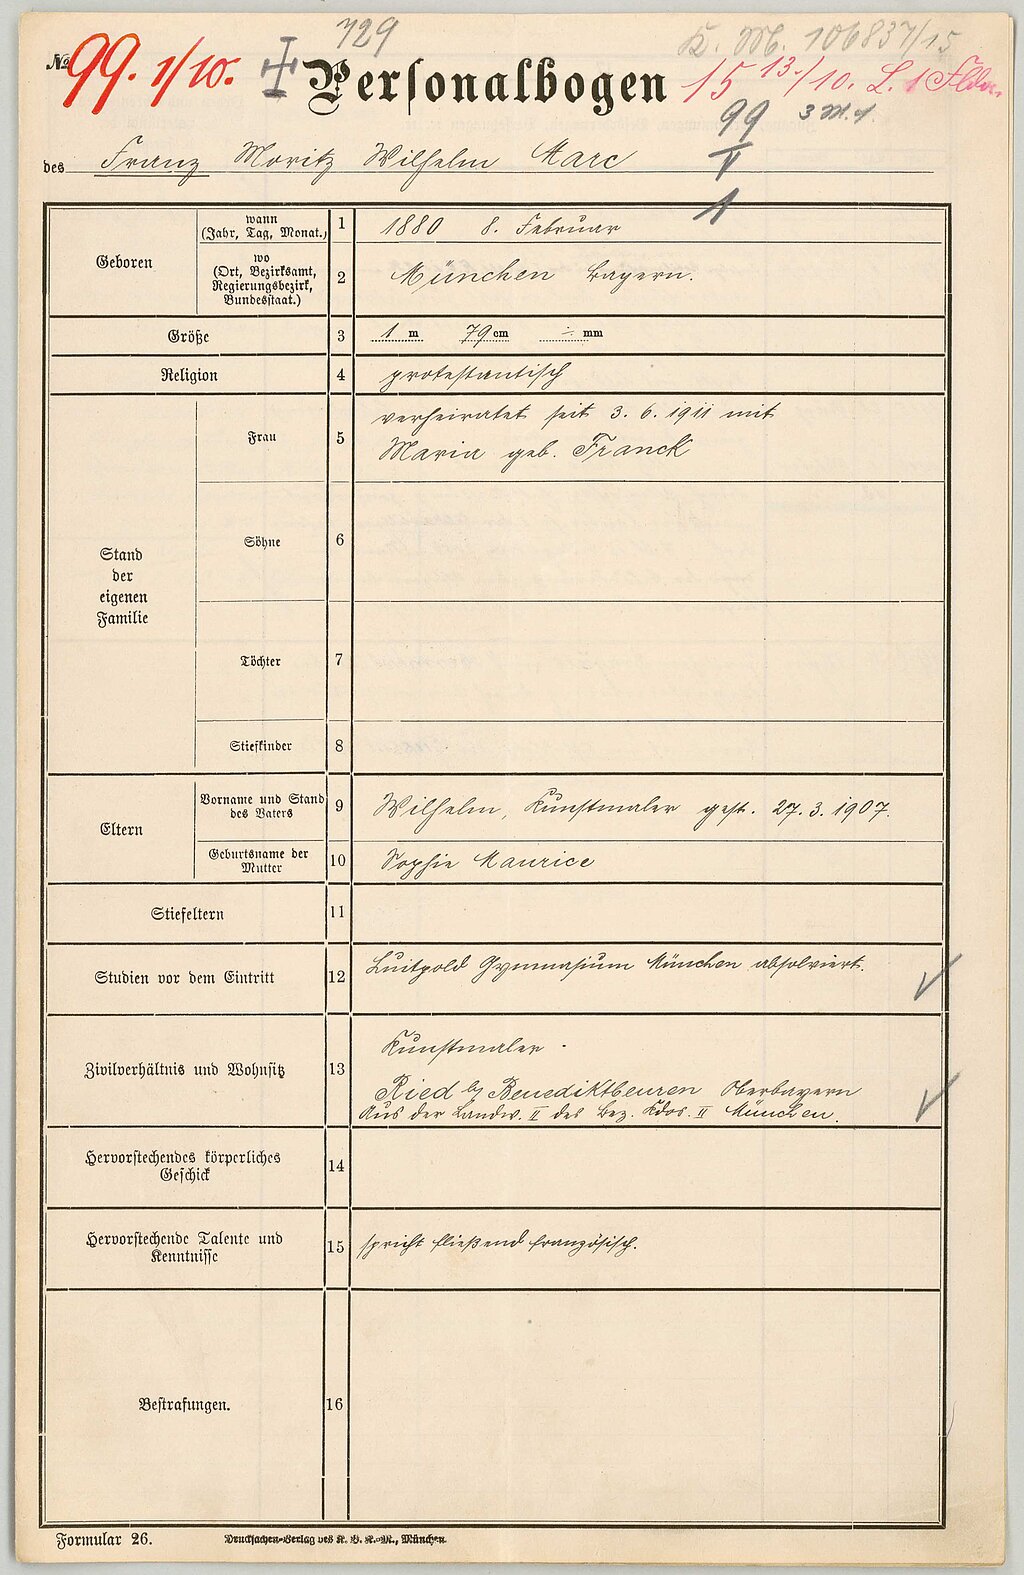 729
K. M. 106837/15
№ 99. 1/10.
Personalbogen
15 13./10. L.
99 3 M. 4.
V
1
des Franz Moritz Wilhelm Marc
Geboren
wann
(Jahr, Tag, Monat.)
1
1880 8. Februar
wo
(Ort, Bezirksamt,
Regierungsbezirk,
Bundesstaat.)
2
München Bayern.
Größe 3 1 m 79 cm ÷ mm
Religion 4 protestantisch
Stand
der
eigenen
Familie
Frau 5
verheiratet seit 3. 6. 1911 mit
Maria geb. Franck
Söhne 6
Töchter 7
Stiefkinder 8
Eltern
Vorname und Stand
des Vaters
9
Wilhelm, Kunstmaler gest. 27. 3. 1907.
Geburtsname der
Mutter
10
Sophie Maurice
Stiefeltern 11
Studien vor dem Eintritt 12 Luitpold Gymnasium München absolviert.
Zivilverhältnis und Wohnsitz 13
Kunstmaler.
Ried b/ Benediktbeuren Oberbayern
Aus der Landw. II des Bez. Kdos. II München.
Hervorstechendes körperliches
Geschick
14
Hervorstechende Talente und
Kenntnisse
15 spricht fließend französisch.
Bestrafungen. 16
Formular 26. Drucksachen-Verlag des K. B. K.-M., München.